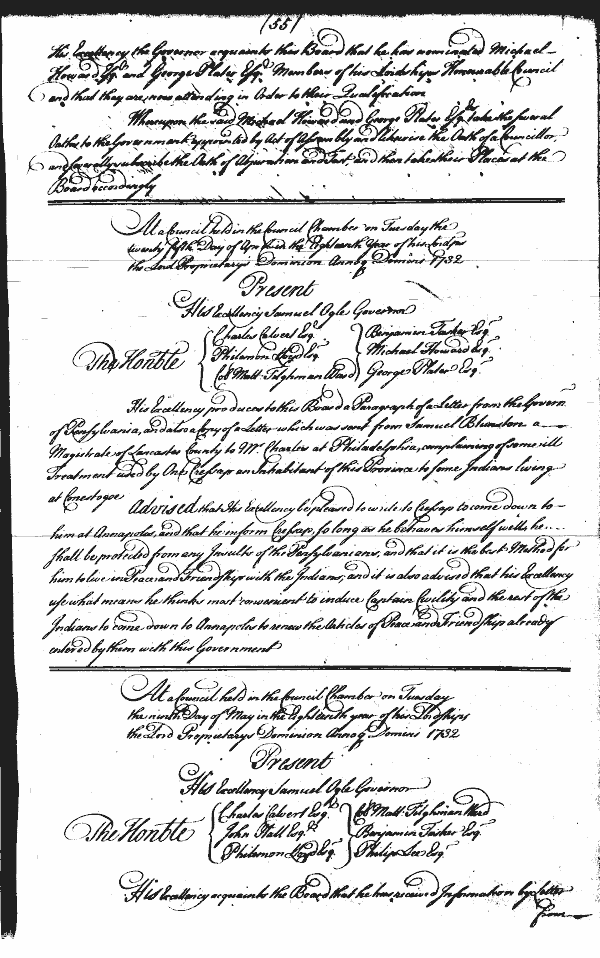 (55)
His Excellency the Governor acquaints this Board that he has nominated Michael
Howard Esqr. and George Plater Esqr. Members of his Lordships Honourable Council
and that they are now attending in Order to their Qualification
Whereupon the said Michael Howard and George Plater Esqrs. take the several
Oaths to the Government appointed by Act of Assembly and likewise the Oath of a Councillor,
and severally subscribe the Oath of Abjuration and Test, and then take their Places at the
Board accordingly
At a Council held in the Council Chamber on Tuesday the
twenty fifth Day of April in the Eighteenth Year of his Lordsps
the Lord Proprietarys Dominion Annoq Domini 1732
Present
His Excellency Samuel Ogle Governor
The Honble
Charles Calvert Esqr.
Philemon Lloyd Esqr.
Col Matt. Tilghman Ward
Benjamin Tasker Esqr.
Michael Howard Esqr.
George Plater Esqr.
His Excellency produces to this Board a Paragraph of a Letter from the Govern
of Pensylvania, and also a Copy of a Letter which was sent from Samuel Blunston a
Magistrate of Lancaster County to Mr Charles at Philadelphia, complaining of some ill
Treatment used by One Cresap an Inhabitant of this Province to some Indians living
at Conestogoe
Advised that His Excellency be pleased to write to Cressap to come down to
him at Annapolis, and that he inform Cressap, so long as he behaves himself well he
shall be protected from any Insults of the Pensylvanians, and that it is the best Method for
him to live in Peace and Friendship with the Indians, and it is also advised that his Excellency
use what means he thinks most convenient to induce Captain Civility and the rest of the
Indians to come down to Annapolis to renew the Articles of Peace and Friendship already
entered by them with this Government
At a Council held in the Council Chamber on Tuesday
the ninth Day of May in the Eighteenth year of his Lordships
the Lord Proprietarys Dominion Annoq Domini 1732
Present
His Excellency Samuel Ogle Governor
The Honble
Charles Calvert Esqr.
John Hall Esqr.
Philemon Lloyd Esqr.
Col Matt. Tilghman Ward
Benjamin Tasker Esqr.
Philip Lee Esqr.
His Excellency acquaints the Board that he has received Information by Letter
from